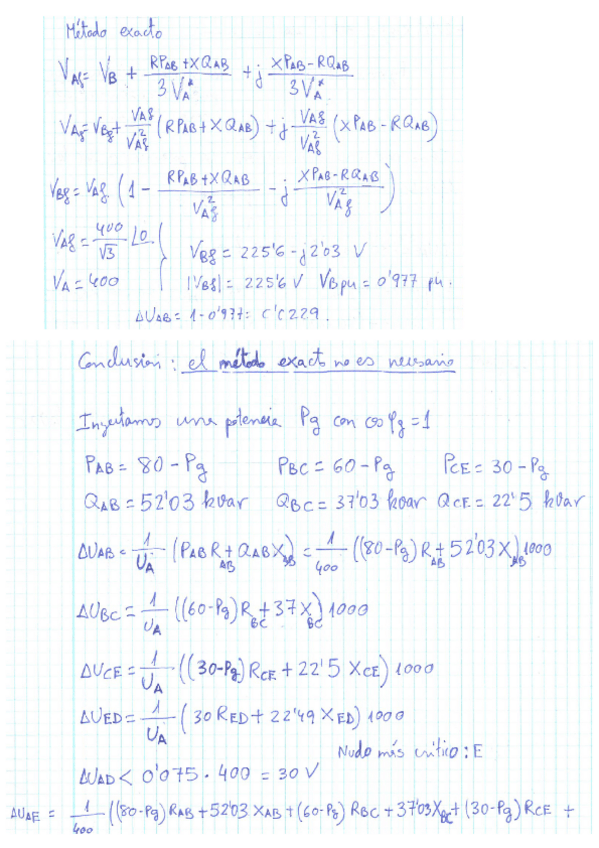 Método exacto
V_Af = V_B + (RP_AB + XQ_AB)/(3V_A*) + j (XP_AB - RQ_AB)/(3V_A*)
V_Af = V_Bf + V_Af/V_Af² (RP_AB + XQ_AB) + j V_Af/V_Af² (XP_AB - RQ_AB)
V_Bf = V_Af (1 - (RP_AB + XQ_AB)/V_Af² - j (XP_AB - RQ_AB)/V_Af²)
V_Af = 400/√3 ∠0
V_A = 400
V_Bf = 225'6 - j2'03 V
|V_Bf| = 225'6 V V_Bpu = 0'977 pu.
ΔU_AB = 1 - 0'977 = 0'0229.
Conclusion: el método exacto no es necesario
Inyectamos una potencia Pg con cos φg = 1
P_AB = 80 - Pg P_BC = 60 - Pg P_CE = 30 - Pg
Q_AB = 52'03 kvar Q_BC = 37'03 kvar Q_CE = 22'5 kvar
ΔU_AB = 1/U_A (P_AB R_AB + Q_AB X_AB) = 1/400 ((80-Pg) R_AB + 52'03 X_AB) 1000
ΔU_BC = 1/U_A ((60-Pg) R_BC + 37 X_BC) 1000
ΔU_CE = 1/U_A ((30-Pg) R_CE + 22'5 X_CE) 1000
ΔU_ED = 1/U_A (30 R_ED + 22'49 X_ED) 1000
Nudo más crítico: E
ΔU_AD < 0'075 · 400 = 30 V
ΔU_AE = 1/400 ((80-Pg) R_AB + 52'03 X_AB + (60-Pg) R_BC + 37'03 X_BC + (30-Pg) R_CE +